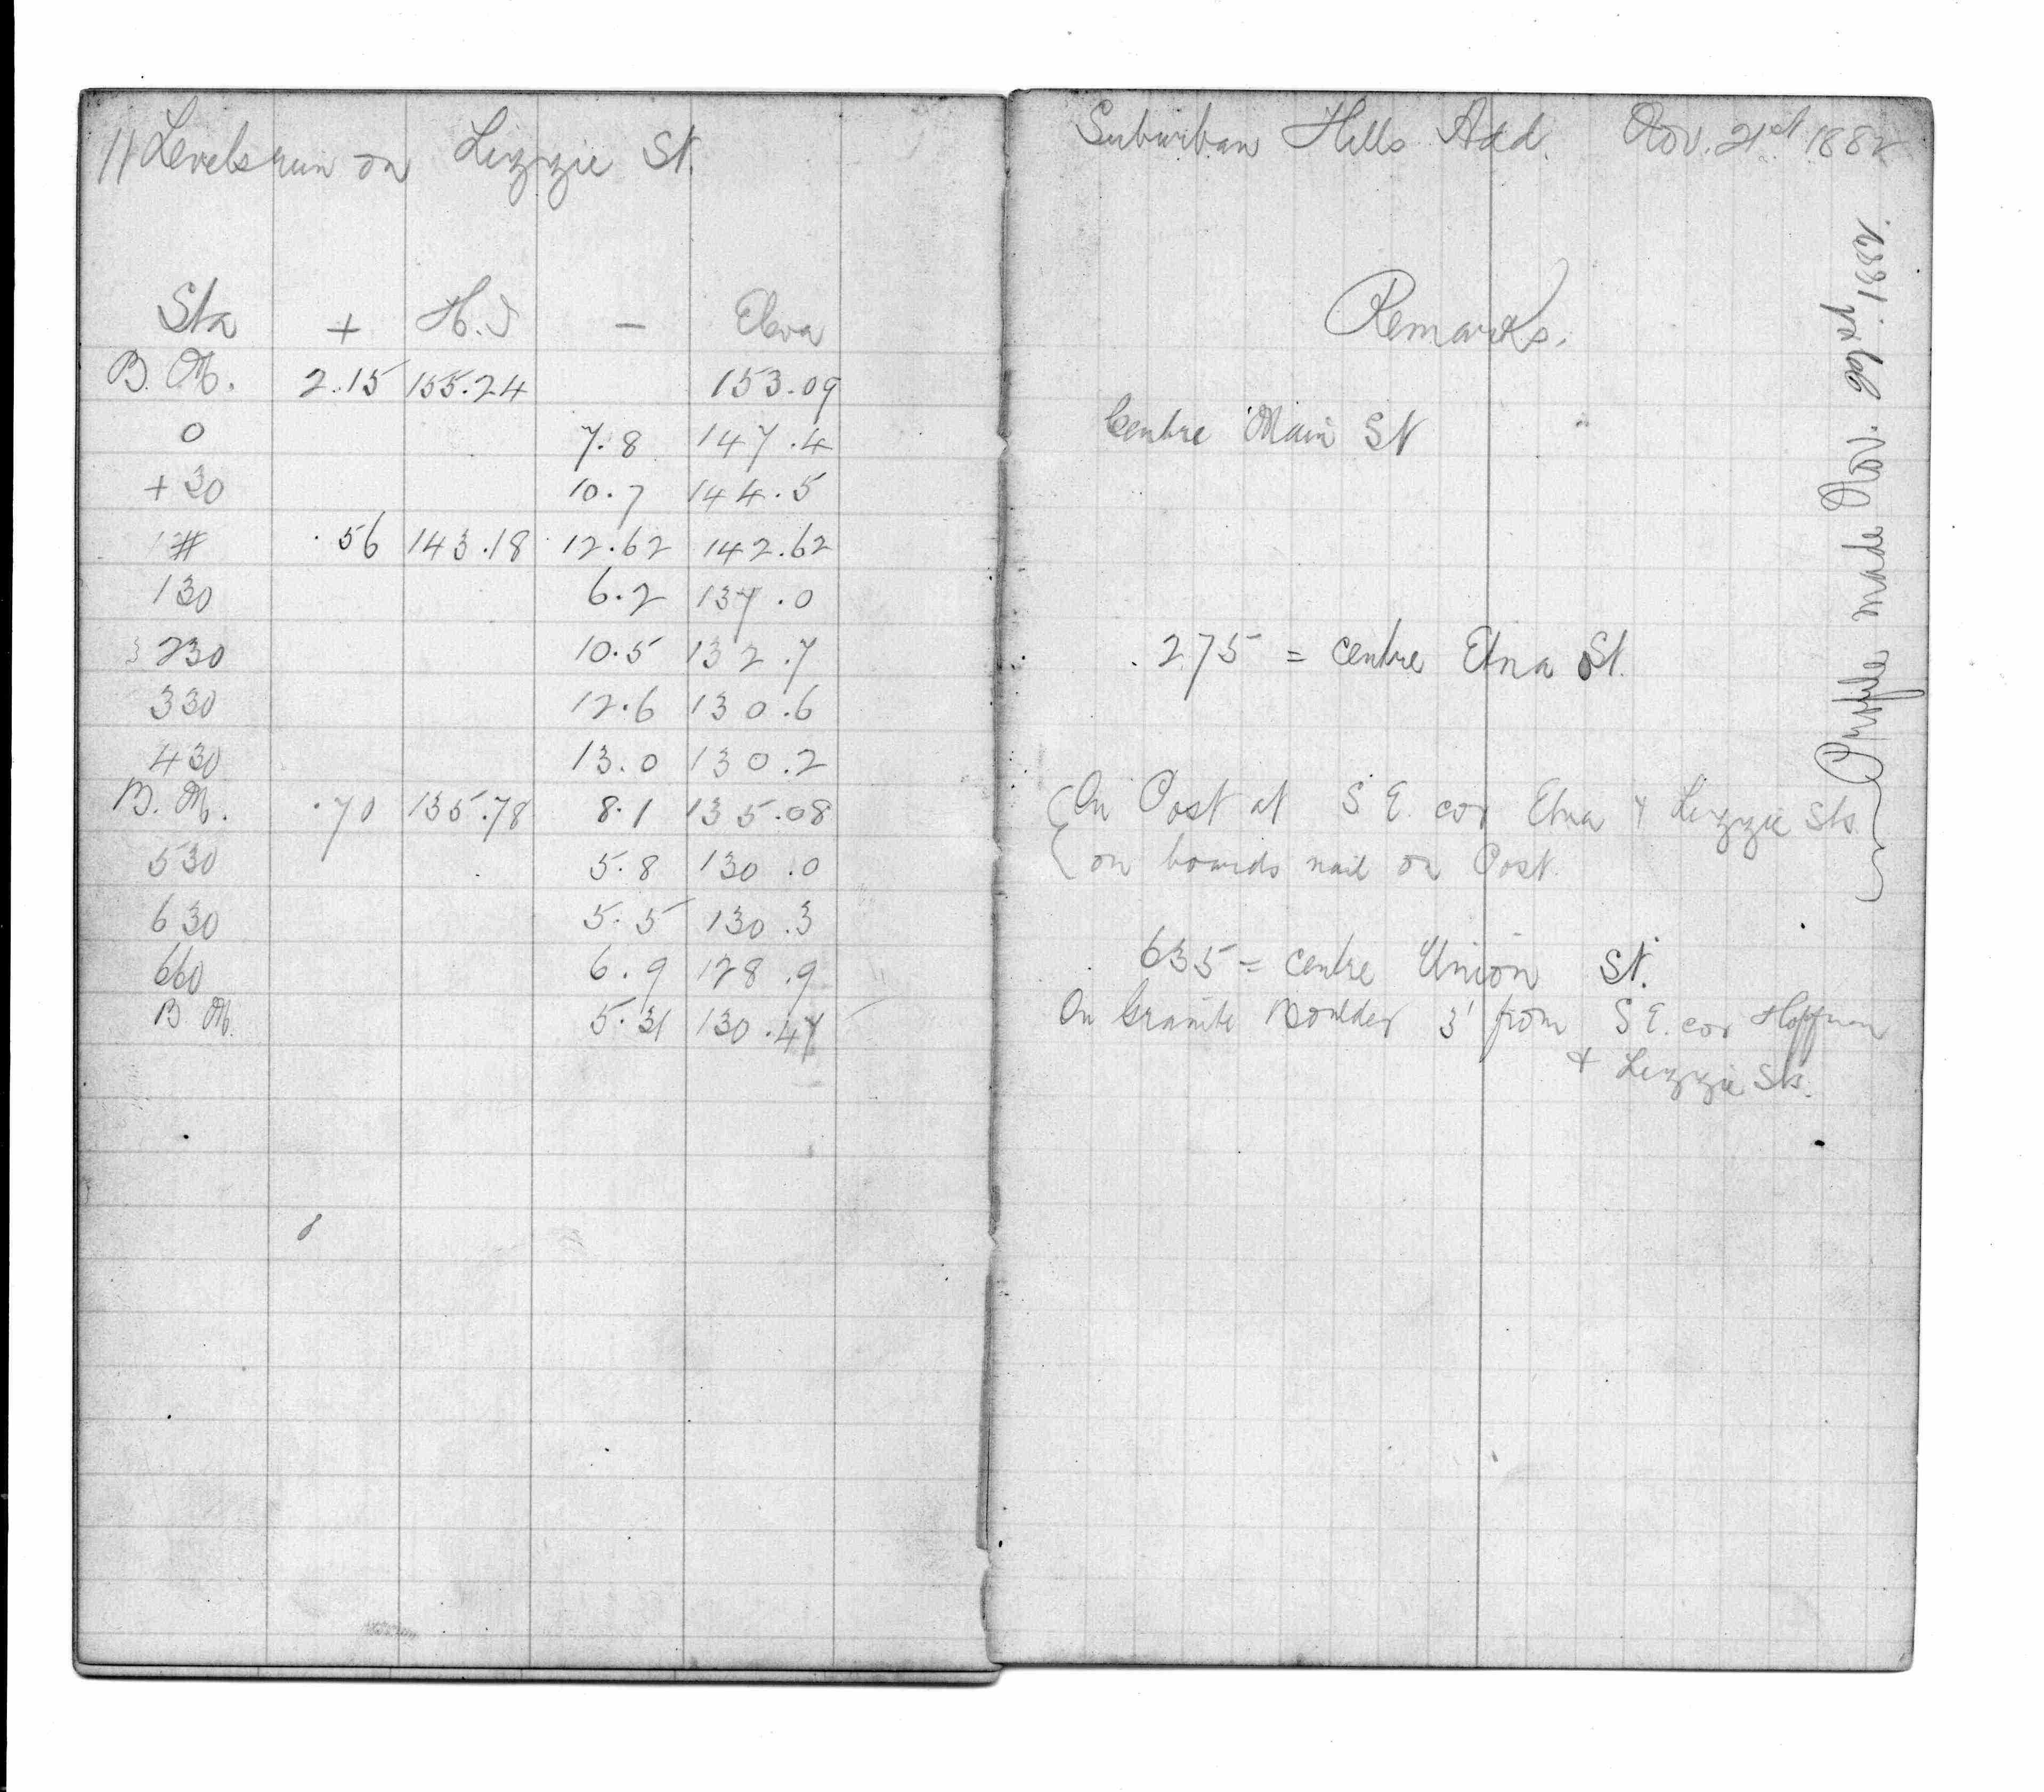 11 Levels run on Lizzie St.
Sta + H.I - Eleva
B. M. 2.15 155.24 153.09
0 7.8 147.4
+30 10.7 144.5
# .56 143.18 12.62 142.62
130 6.2 137.0
230 10.5 132.7
330 12.6 130.6
430 13.0 130.2
B. M. .70 135.78 8.1 135.08
530 5.8 130.0
630 5.5 130.3
660 6.9 128.9
B. M. 5.31 130.47
Suburban Hills Add. Nov. 21st 1882
Remarks.
Centre Main St
275 = centre Etna St.
On Post at S E. cor Etna & Lizzie Sts
on boards nail on Post.
635 = centre Union St.
On Granite Boulder 3' from S E. cor Hoffman
& Lizzie Sts.
Profile made Nov. 1882.